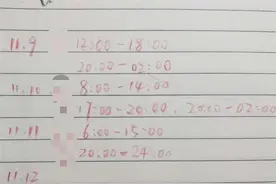 11.9 12:00-18:00
20:00-02:00
11.10 8:00-14:00
17:00-20:00, 20:00-02:00
11.11 6:00-15:00
20:00-24:00
11.12